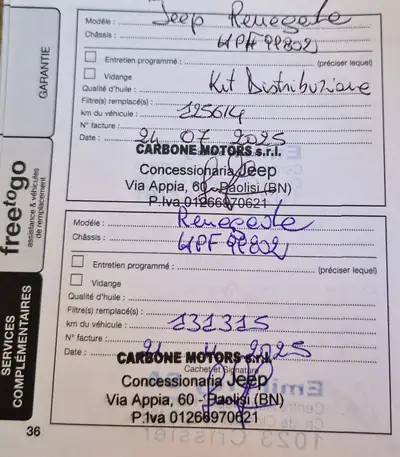 Modèle : Jeep Renegade
Châssis : HPH 99802
Entretien programmé : (préciser lequel)
Vidange
Qualité d'huile : Kit Distribuzione
Filtre(s) remplacé(s) :
km du véhicule : 125614
N° facture :
Date : 24 07 2025
CARBONE MOTORS s.r.l.
Concessionaria Jeep
Via Appia, 60 - Paolisi (BN)
P.Iva 01266970621
Modèle : Renegade
Châssis : HPF 99802
Entretien programmé : (préciser lequel)
Vidange
Qualité d'huile :
Filtre(s) remplacé(s) :
km du véhicule : 131315
N° facture :
Date : 2025
CARBONE MOTORS s.r.l.
Cachet et Signature
Concessionaria Jeep
Via Appia, 60 - Paolisi (BN)
P.Iva 01266970621
GARANTIE
freetogo
assistance & véhicules
de remplacement
SERVICES
COMPLÉMENTAIRES
36